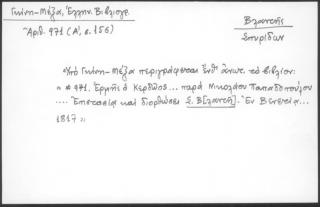 Γκίνη-Μέξα, Ἑλλην. Βιβλιογρ.
Ἀριθ. 971 (Α', σ. 156)
Βλαντῆς
Σπυρίδων
Ὑπὸ Γκίνη-Μέξα περιγράφεται ἐνθ' ἀνωτ. τὸ βιβλίον:
" * 971. Ἑρμῆς ὁ Κερδῶος... παρὰ Νικολάου Παπαδοπούλου
.... Ἐπιστασίᾳ καὶ διορθώσει Σ. Β[λαντῆ]. Ἐν Βενετίᾳ...
1817 "